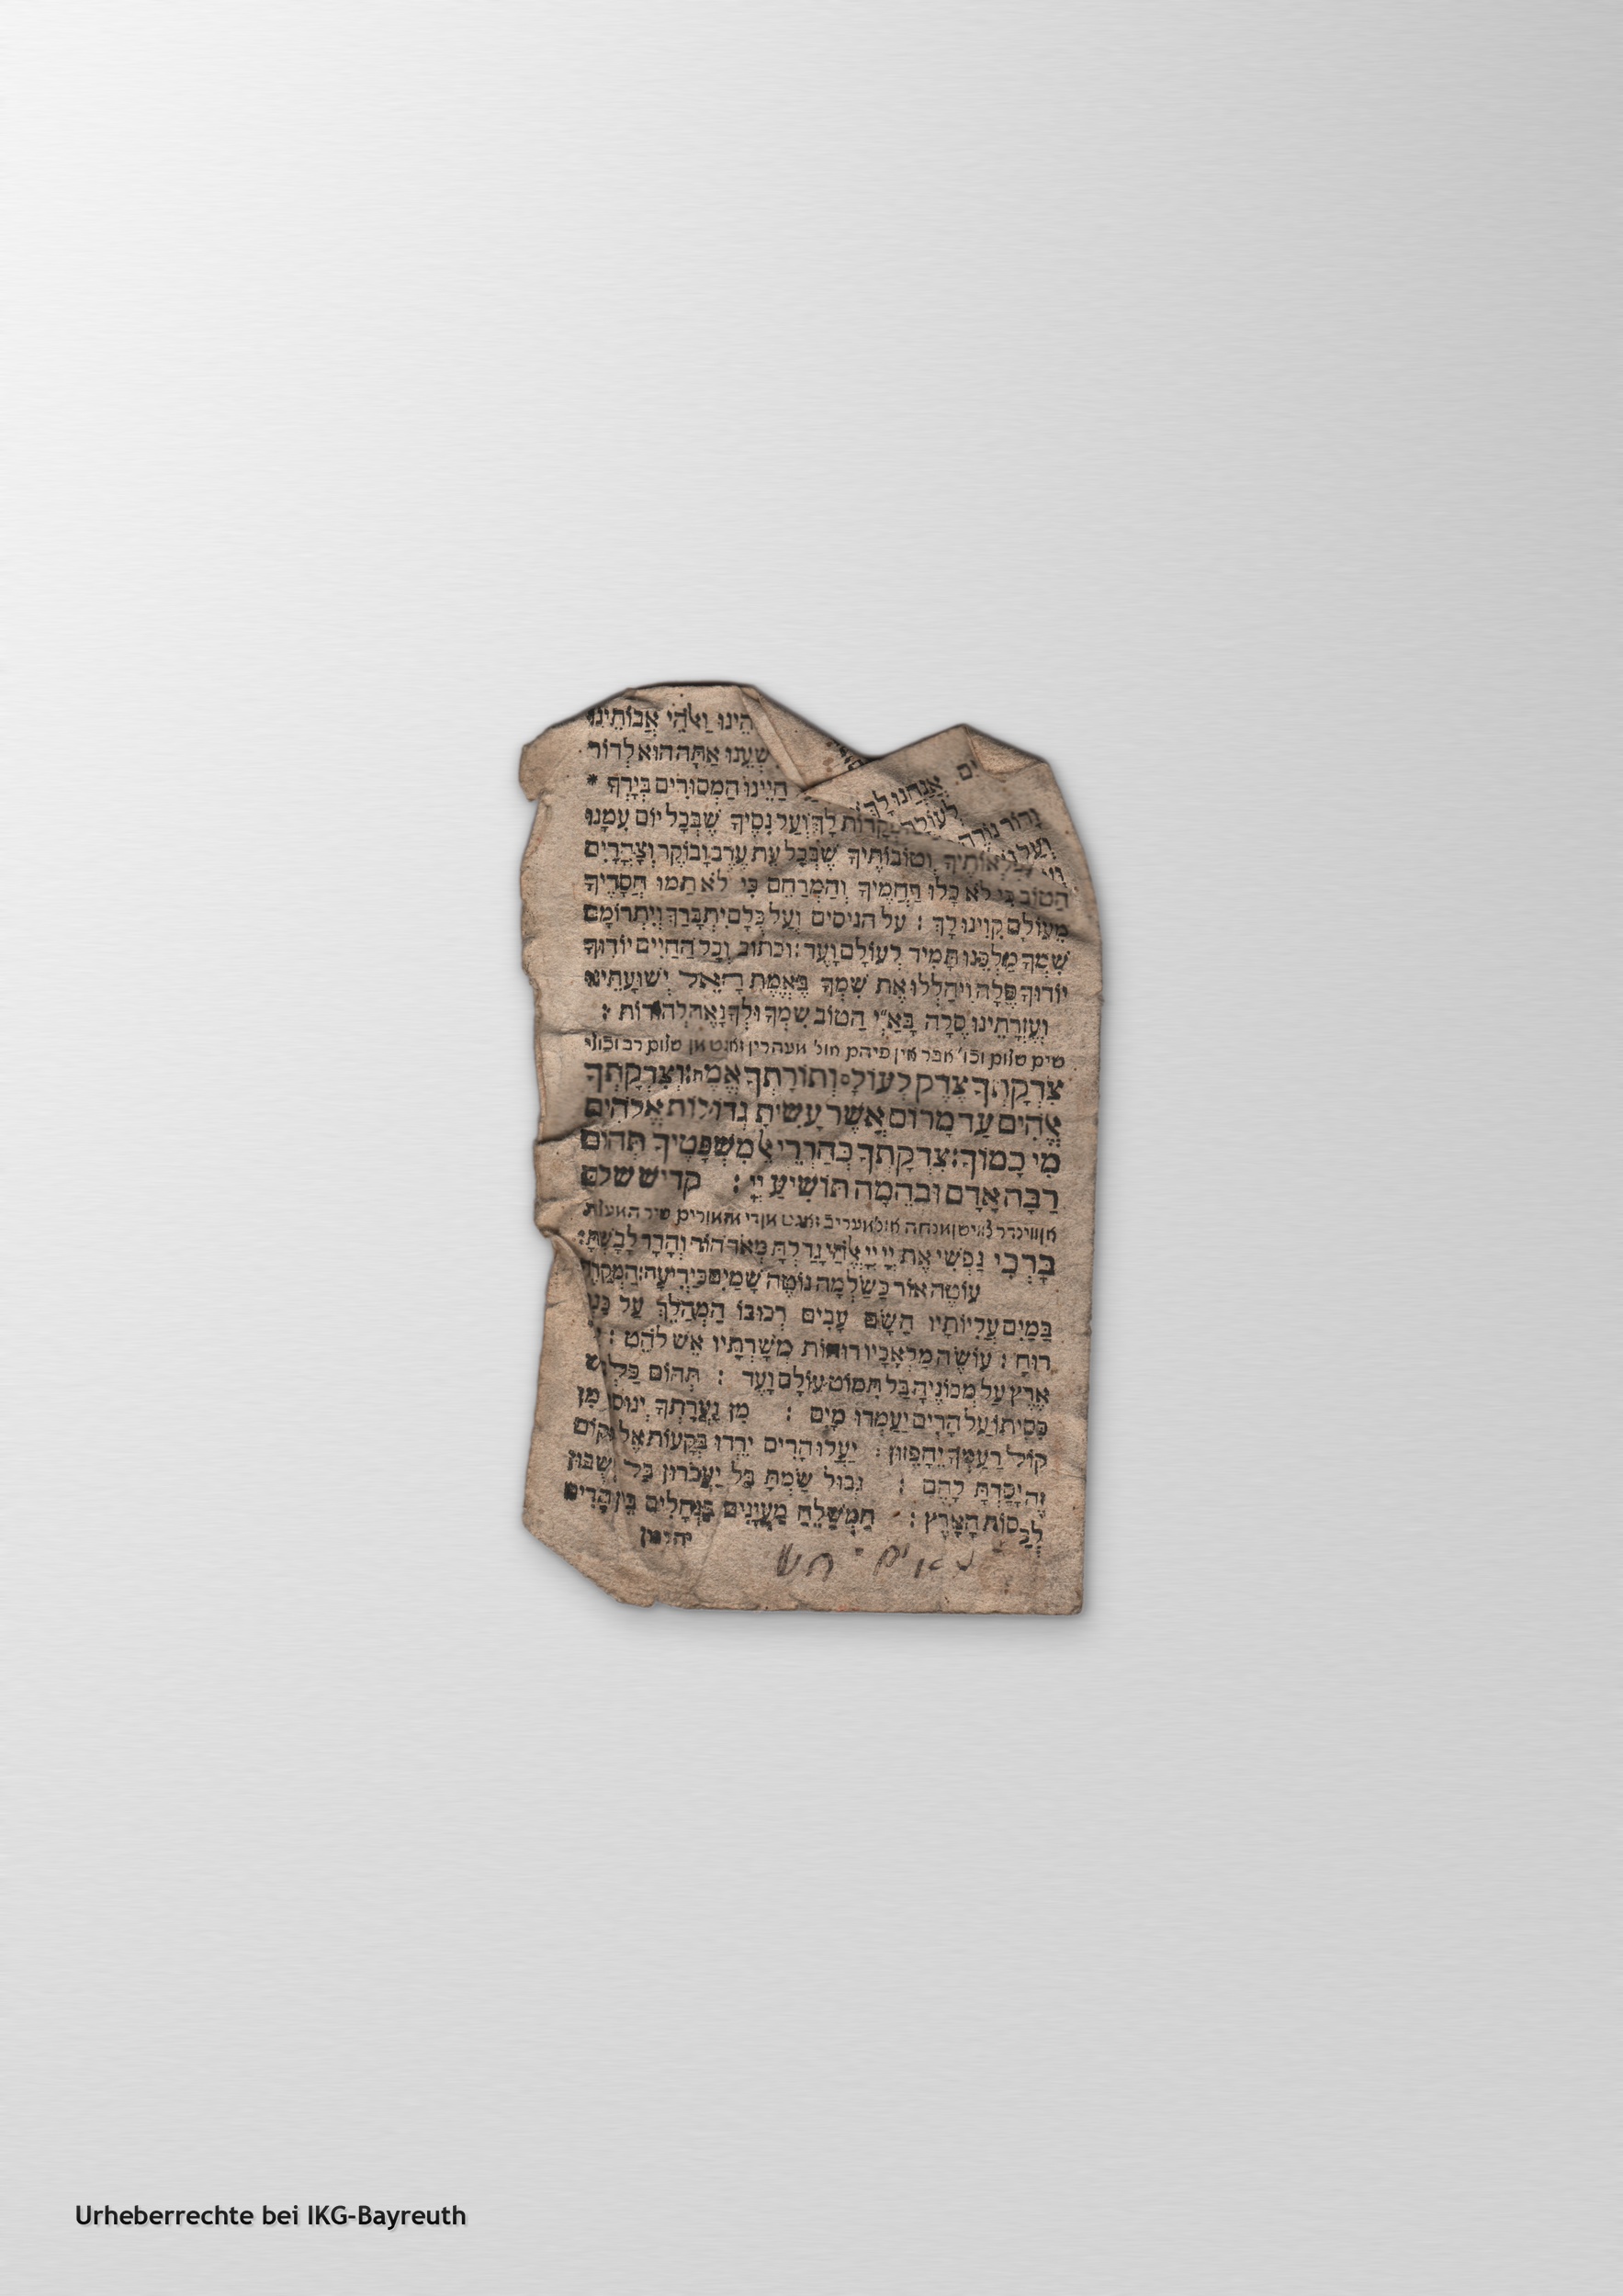 הינו ואלהי אבותינו
אתה הוא לדור
המסורים בידך *
אנחנו לך
לך ועל נסיך שבכל יום עמנו
וטובותיך שבכל עת ערב ובוקר וצהרים
הטוב כי לא כלו רחמיך והמרחם כי לא תמו חסדיך
מעולם קוינו לך : על הניסים ועל כלם יתברך ויתרומם
שמך מלכנו תמיד לעולם ועד : וכתוב וכל החיים יודוך
יודוך סלה ויהללו את שמך באמת האל ישועתינו
ועזרתינו סלה בא״י הטוב שמך ולך נאה להודות :
שים שלום וכו׳ אין שלום רב
צדקתך צדק לעולם ותורתך אמת : וצדקתך
אלהים עד מרום אשר עשית גדולות אלהים
מי כמוך : צדקתך כהררי אל משפטיך תהום
רבה אדם ובהמה תושיע יי : קדיש שלם
מנחה מעריב זאגט שיר המעלות
ברכי נפשי את יי יי אלהי גדלת מאד הוד והדר לבשת :
עוטה אור כשלמה נוטה שמים כיריעה : המקרה
במים עליותיו השם עבים רכובו המהלך על כנפי
רוח : עושה מלאכיו רוחות משרתיו אש להט :
ארץ על מכוניה בל תמוט עולם ועד : תהום כלבוש
כסיתו על הרים יעמדו מים : מן גערתך ינוסו מן
קול רעמך יחפזון : יעלו הרים ירדו בקעות אל מקום
זה יסדת להם : גבול שמת בל יעברון בל ישבון
לכסות הארץ : המשלח מעינים בנחלים בין הרים
יהלכון
Urheberrechte bei IKG-Bayreuth